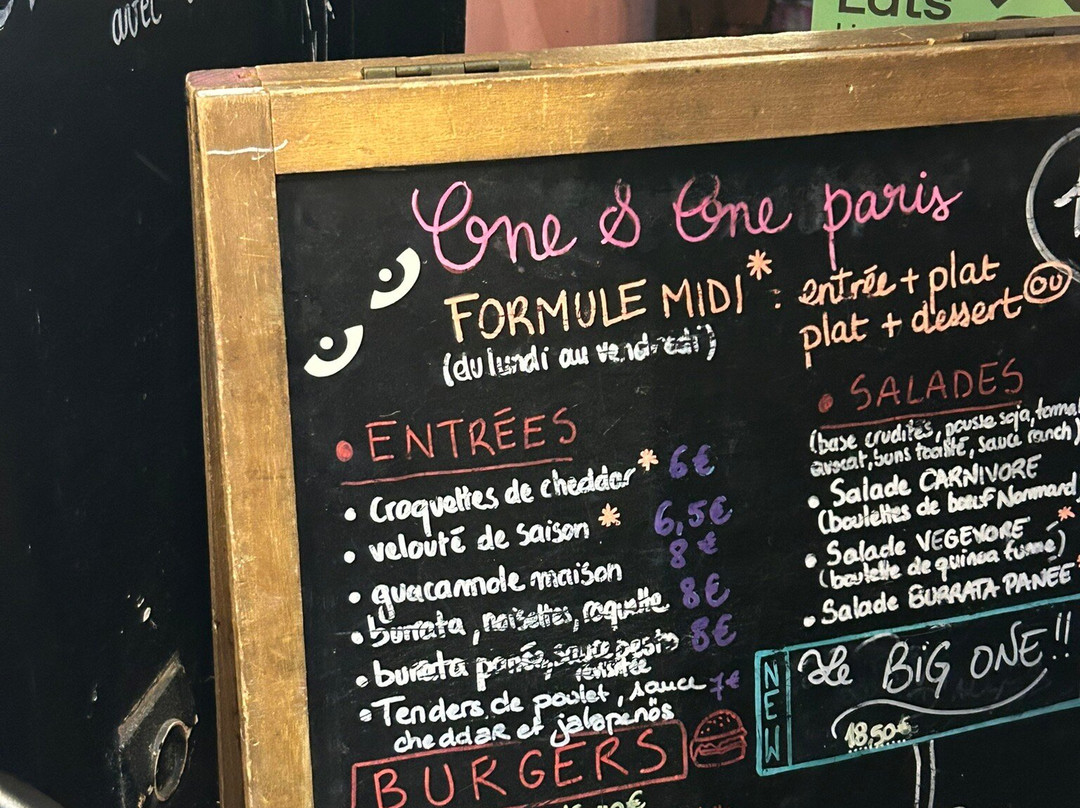 avec
Eats
One & One paris
FORMULE MIDI* : entrée + plat OU
plat + dessert
(du lundi au vendredi)
• ENTRÉES
• Croquettes de cheddar* 6€
• velouté de saison * 6,5€
• guacamole maison 8€
• burrata, noisettes, roquette 8€
• burrata panée, sauce pesto 8€
revisitée
• Tenders de poulet, sauce 7€
cheddar et jalapeños
BURGERS
• SALADES
(base crudités, pousse soja,
avocat, buns toasté, sauce ranch)
• Salade CARNIVORE
(boulettes de bœuf Normand
• Salade VEGEVORE *
(boulette de quinoa fumé)
• Salade BURRATA PANÉE *
NEW
Le BIG ONE!!
18.50€